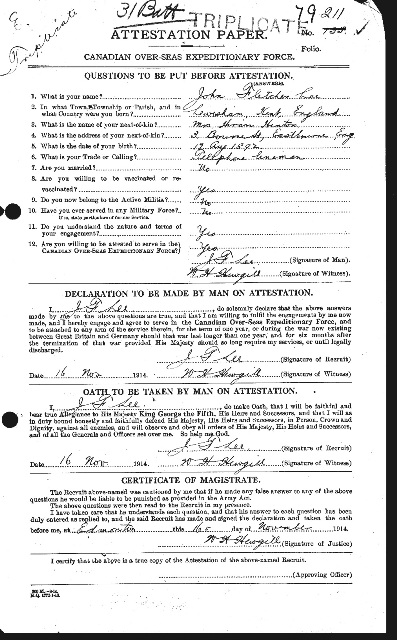 E.
Triplicate
31 Batt
TRIPLICATE
79211
ATTESTATION PAPER.
No.
Folio.
CANADIAN OVER-SEAS EXPEDITIONARY FORCE.
QUESTIONS TO BE PUT BEFORE ATTESTATION.
(ANSWERS).
1. What is your name? John Fletcher Lee
2. In what Town, Township or Parish, and in
what Country were you born? Lewisham, Kent, England
3. What is the name of your next-of-kin? Mrs Hiram Hinton
4. What is the address of your next-of-kin? Eastbourne Eng
5. What is the date of your birth? Aug 1892
6. What is your Trade or Calling? Telephone Lineman
7. Are you married? No
8. Are you willing to be vaccinated or re-
vaccinated? Yes
9. Do you now belong to the Active Militia? No
10. Have you ever served in any Military Force? No
If so, state particulars of former Service.
11. Do you understand the nature and terms of
your engagement? Yes
12. Are you willing to be attested to serve in the
CANADIAN OVER-SEAS EXPEDITIONARY FORCE? Yes
J F Lee (Signature of Man).
W H Hewgill (Signature of Witness).
DECLARATION TO BE MADE BY MAN ON ATTESTATION.
I, J F Lee, do solemnly declare that the above answers
made by me to the above questions are true, and that I am willing to fulfil the engagements by me now
made, and I hereby engage and agree to serve in the Canadian Over-Seas Expeditionary Force, and
to be attached to any arm of the service therein, for the term of one year, or during the war now existing
between Great Britain and Germany should that war last longer than one year, and for six months after
the termination of that war provided His Majesty should so long require my services, or until legally
discharged.
J F Lee (Signature of Recruit)
Date 16 Nov 1914. W H Hewgill (Signature of Witness)
OATH TO BE TAKEN BY MAN ON ATTESTATION.
I, J F Lee, do make Oath, that I will be faithful and
bear true Allegiance to His Majesty King George the Fifth, His Heirs and Successors, and that I will as
in duty bound honestly and faithfully defend His Majesty, His Heirs and Successors, in Person, Crown and
Dignity, against all enemies, and will observe and obey all orders of His Majesty, His Heirs and Successors,
and of all the Generals and Officers set over me. So help me God.
J F Lee (Signature of Recruit)
Date 16 Nov 1914. W H Hewgill (Signature of Witness)
CERTIFICATE OF MAGISTRATE.
The Recruit above-named was cautioned by me that if he made any false answer to any of the above
questions he would be liable to be punished as provided in the Army Act.
The above questions were then read to the Recruit in my presence.
I have taken care that he understands each question, and that his answer to each question has been
duly entered as replied to, and the said Recruit has made and signed the declaration and taken the oath
before me, at Edmonton this 16 day of November 1914.
W H Hewgill (Signature of Justice)
I certify that the above is a true copy of the Attestation of the above-named Recruit.
(Approving Officer)